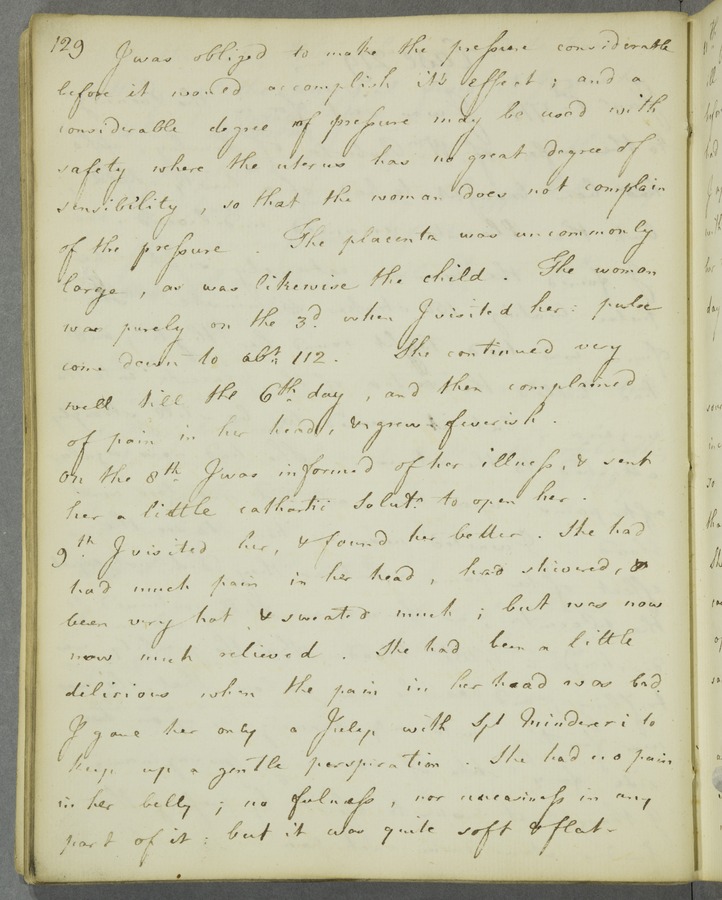 129 I was obliged to make the pressure considerable
before it would accomplish it's effect; and a
considerable degree of pressure may be used with
safety where the uterus has no great degree of
sensibility, so that the woman does not complain
of the pressure. The placenta was uncommonly
large, as was likewise the child. The woman
was purely on the 3d. when I visited her: pulse
come down to abt. 112. She continued very
well till the 6th day, and then complained
of pain in her head, & grew feverish.
On the 8th I was informed of her illness, & sent
her a little cathartic Solutn. to open her.
9th I visited her, & found her better. She had
had much pain in her head, had shivered, &
been very hot & sweated much; but was now
now much relieved. She had been a little
dilirious when the pain in her head was bad.
I gave her only a Julep with Spt Mindereri to
keep up a gentle perspiration. She had no pain
in her belly; no fulness, nor uneasiness in any
part of it: but it was quite soft & flat-